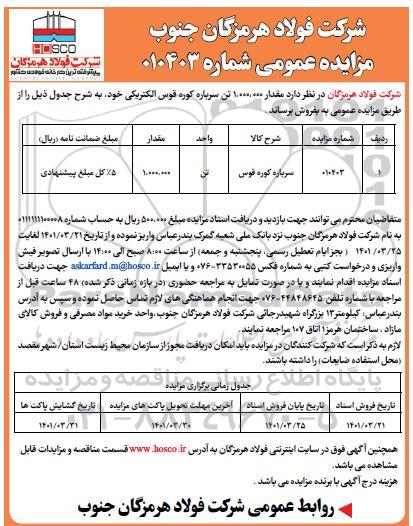 شرکت فولاد هرمزگان جنوب
مزایده عمومی شماره ۰۱۰۴۰۳
HOSCO
شرکت فولاد هرمزگان
شرکت فولاد هرمزگان در نظر دارد مقدار ۱.۰۰۰.۰۰۰ تن سرباره کوره قوس الکتریکی خود، به شرح جدول ذیل را از
طریق مزایده عمومی به بفروش برساند.
ردیف شماره مزایده شرح کالا واحد مقدار مبلغ ضمانت نامه (ریال)
۱ ۰۱۰۴۰۳ سرباره کوره قوس تن ۱.۰۰۰.۰۰۰ ۵٪ کل مبلغ پیشنهادی
متقاضیان محترم می توانند جهت بازدید و دریافت اسناد مزایده مبلغ ۵۰۰.۰۰۰ ریال به حساب شماره ۰۱۱۱۱۱۱۱۰۰۰۰۸
به نام شرکت فولاد هرمزگان جنوب نزد بانک ملی شعبه گمرک بندرعباس واریز نموده و از تاریخ ۱۴۰۱/۰۳/۲۱ لغایت
۱۴۰۱/۰۳/۲۵ (بجز ایام تعطیل رسمی، پنجشنبه و جمعه) از ساعت ۸:۰۰ صبح الی ۱۴:۰۰ با ارسال تصویر فیش
واریزی و درخواست کتبی به شماره فکس ۳۳۵۳۰۵۵-۰۷۶ و یا ایمیل askarfard.m@hosco.ir جهت دریافت
اسناد مزایده اقدام نمایند و یا در صورت تمایل به مراجعه حضوری (در بازه زمانی ذکر شده) ۴۸ ساعت قبل از
مراجعه با شماره تلفن ۴۴۸۴۸۶۴۵-۰۷۶ جهت انجام هماهنگی های لازم تماس حاصل نموده و سپس به آدرس
بندرعباس: کیلومتر ۱۳ بزرگراه شهیدرجائی شرکت فولاد هرمزگان جنوب، واحد خرید مواد مصرفی و فروش کالای
مازاد . ساختمان هرمز ۱ اتاق ۱۰۷ مراجعه نمایند.
لازم به ذکر است که شرکت کنندگان در مزایده باید امکان دریافت مجوز از سازمان محیط زیست استان/ شهر مقصد
(محل استفاده ضایعات) را داشته باشند.
جدول زمانی برگزاری مزایده
تاریخ فروش اسناد تاریخ پایان فروش اسناد آخرین مهلت تحویل پاکت های مزایده تاریخ گشایش پاکت ها
۱۴۰۱/۰۳/۲۱ ۱۴۰۱/۰۳/۲۵ ۱۴۰۱/۰۳/۳۰ ۱۴۰۱/۰۳/۳۱
همچنین آگهی فوق در سایت اینترنتی فولاد هرمزگان به آدرس www.hosco.ir قسمت مناقصه و مزایدات قابل
مشاهده می باشد.
هزینه درج آگهی با برنده مزایده می باشد.
روابط عمومی شرکت فولاد هرمزگان جنوب